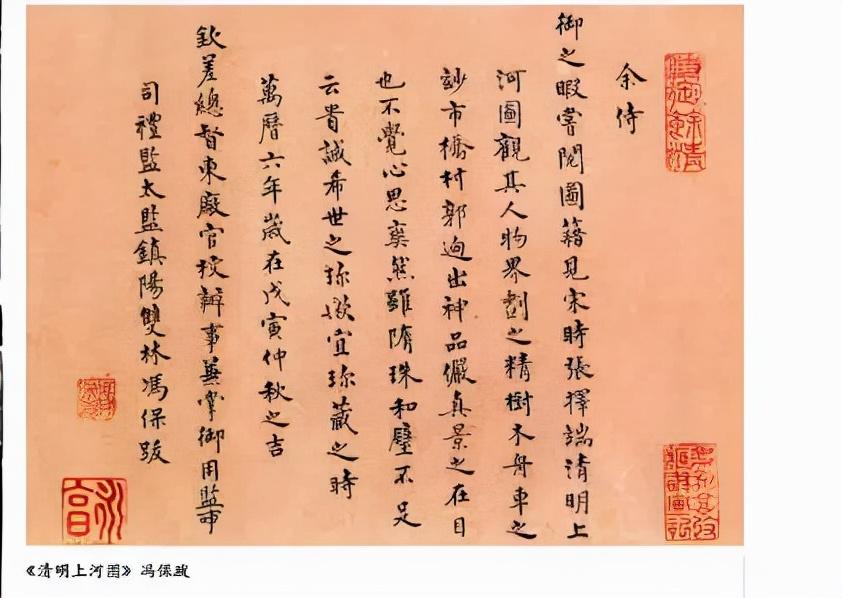 余侍
御之暇嘗閱圖籍見宋時張擇端清明上
河圖觀其人物界劃之精樹木舟車之
玅市橋村郭迥出神品儼真景之在目
也不覺心思爽然雖隋珠和璧不足
云貴誠希世之珎歟宜珎藏之時
萬曆六年歲在戊寅仲秋之吉
欽差總督東廠官校辦事兼掌御用監事
司禮監太監鎮陽雙林馮保跋
《清明上河图》 冯保跋